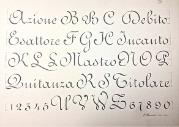 Azione B B C Debito
Esattore F G H Incanto
K L L Mastro N O P
Quitanza R S Titolare
1 2 3 4 5 U V W S 6 7 8 9 0